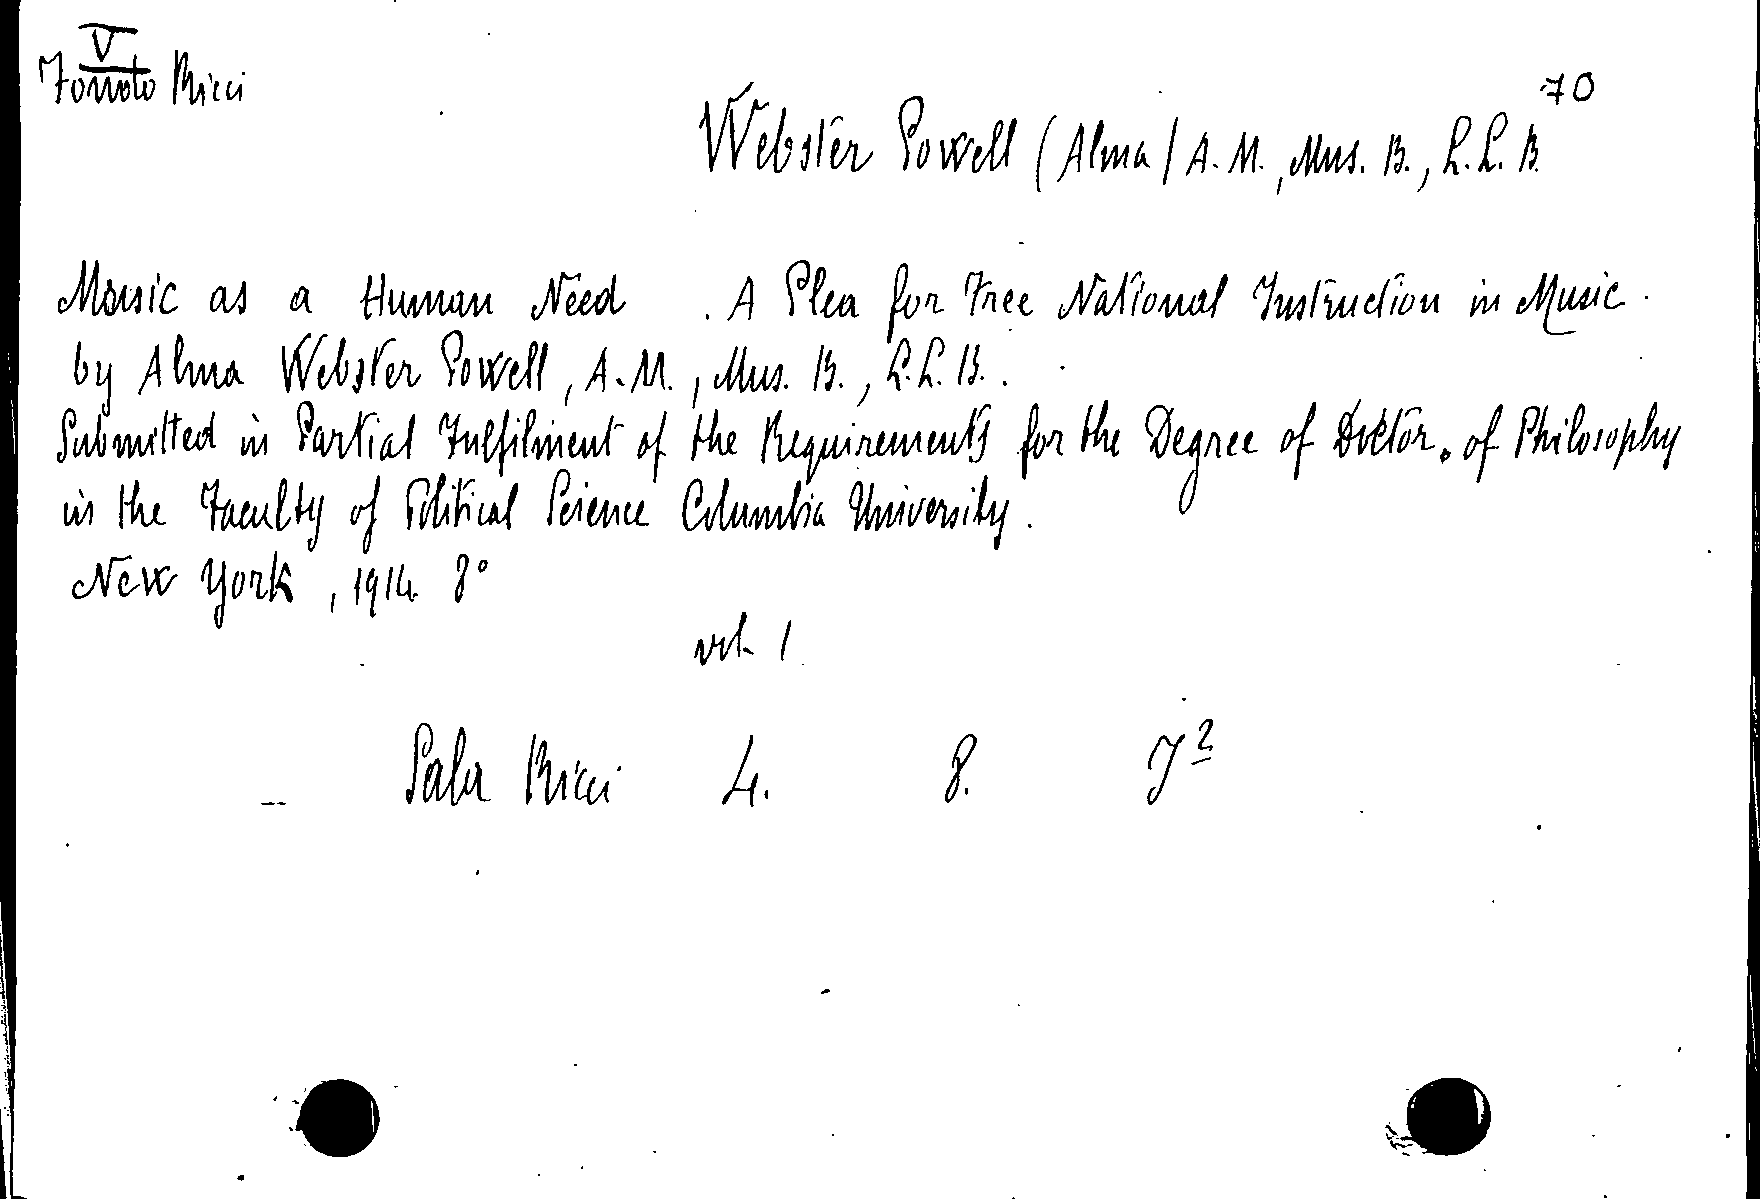 V
Fondo Ricci
70
Webster Powell (Alma) A. M., Mus. B., L. L. B.
Music as a Human Need . A Plea for Free National Instruction in Music.
by Alma Webster Powell, A. M., Mus. B., L. L. B. .
Submitted in Partial Fulfilment of the Requirements for the Degree of Doktor. of Philosophy
in the Faculty of Political Science Columbia University.
New York, 1914. 8°
vol. 1
Sala Ricci 4. 8. 7²